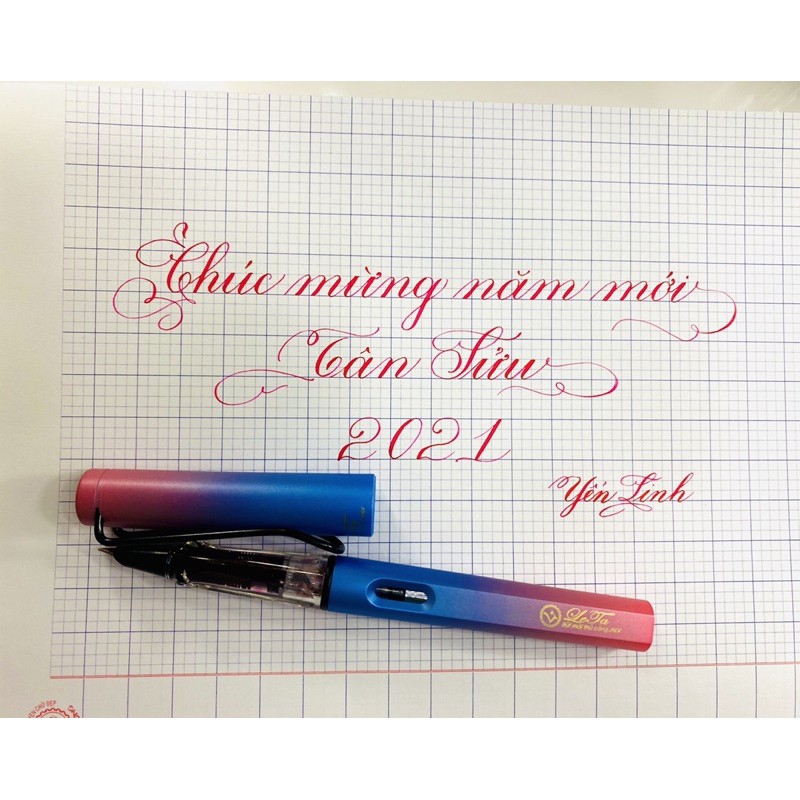 Chúc mừng năm mới
Tân Sửu
2021
Yến Linh
LeTa